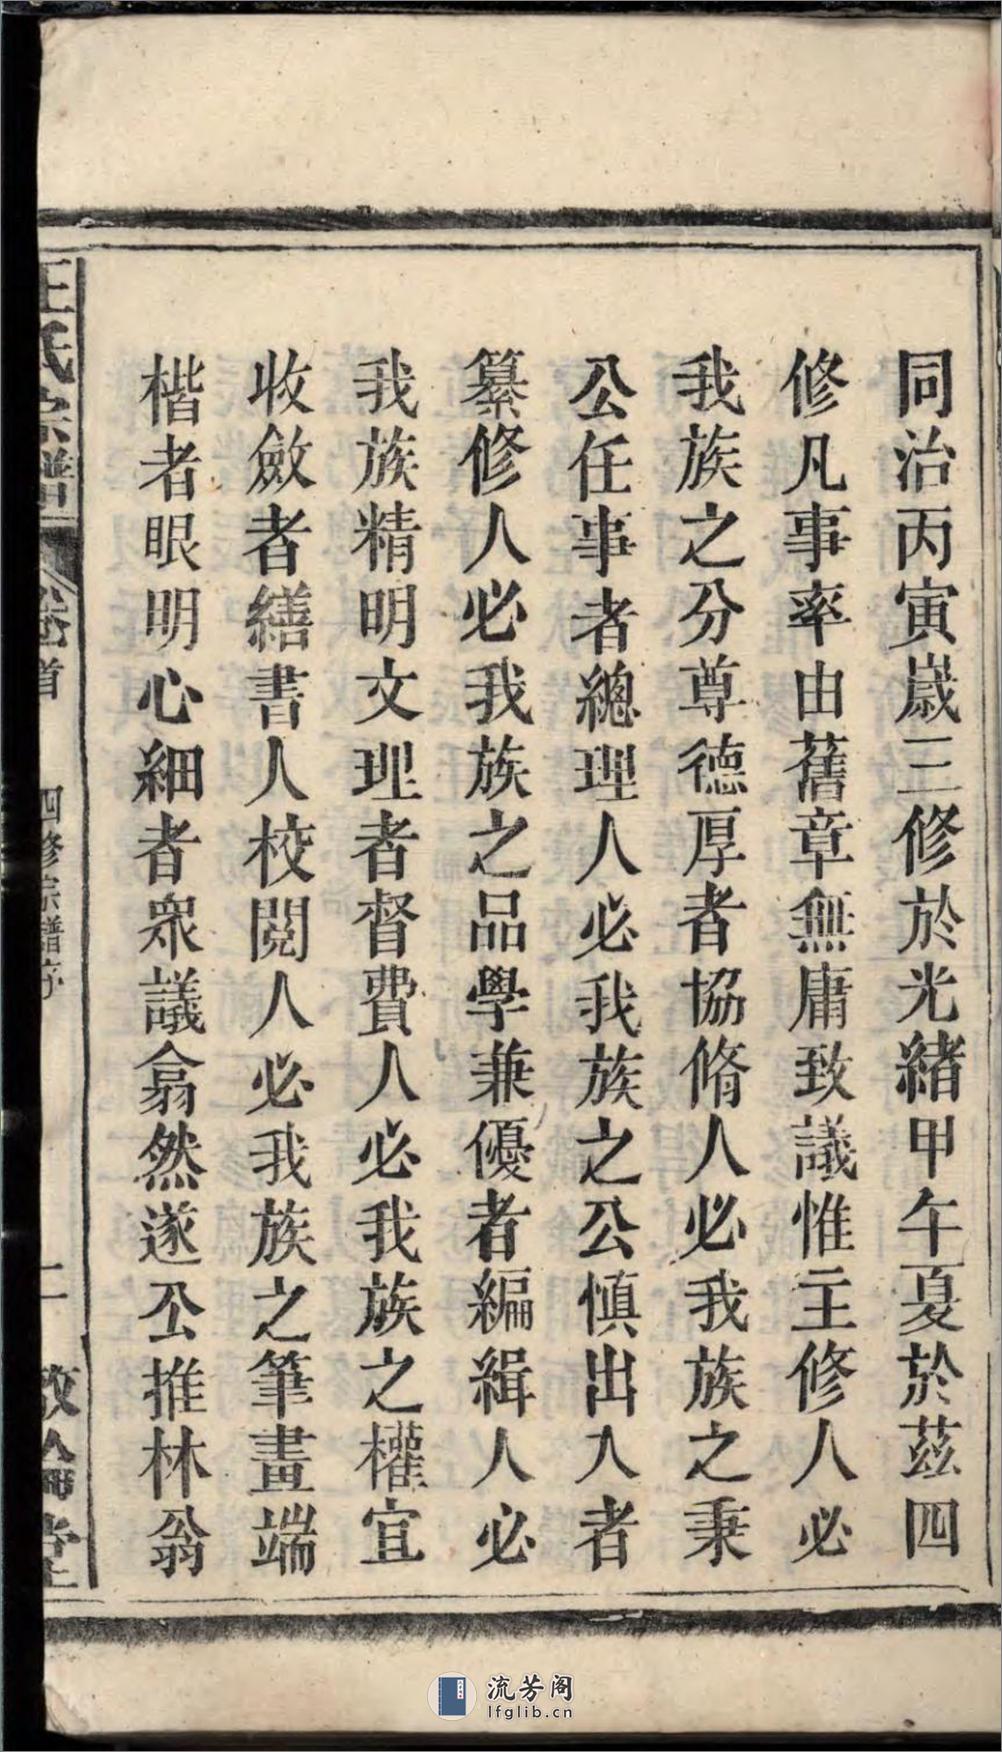 同治丙寅歲三修於光緒甲午夏於茲四
修凡事率由舊章無庸致議惟主修人必
我族之分尊德厚者協脩人必我族之秉
公任事者總理人必我族之公慎出入者
纂修人必我族之品學兼優者編緝人必
我族精明文理者督費人必我族之權宜
收斂者繕書人校閱人必我族之筆畫端
楷者眼明心細者衆議翕然遂公推林翁
王氏宗譜 卷首 四修宗譜序 二 敦倫堂
流芳阁
lfglib.cn